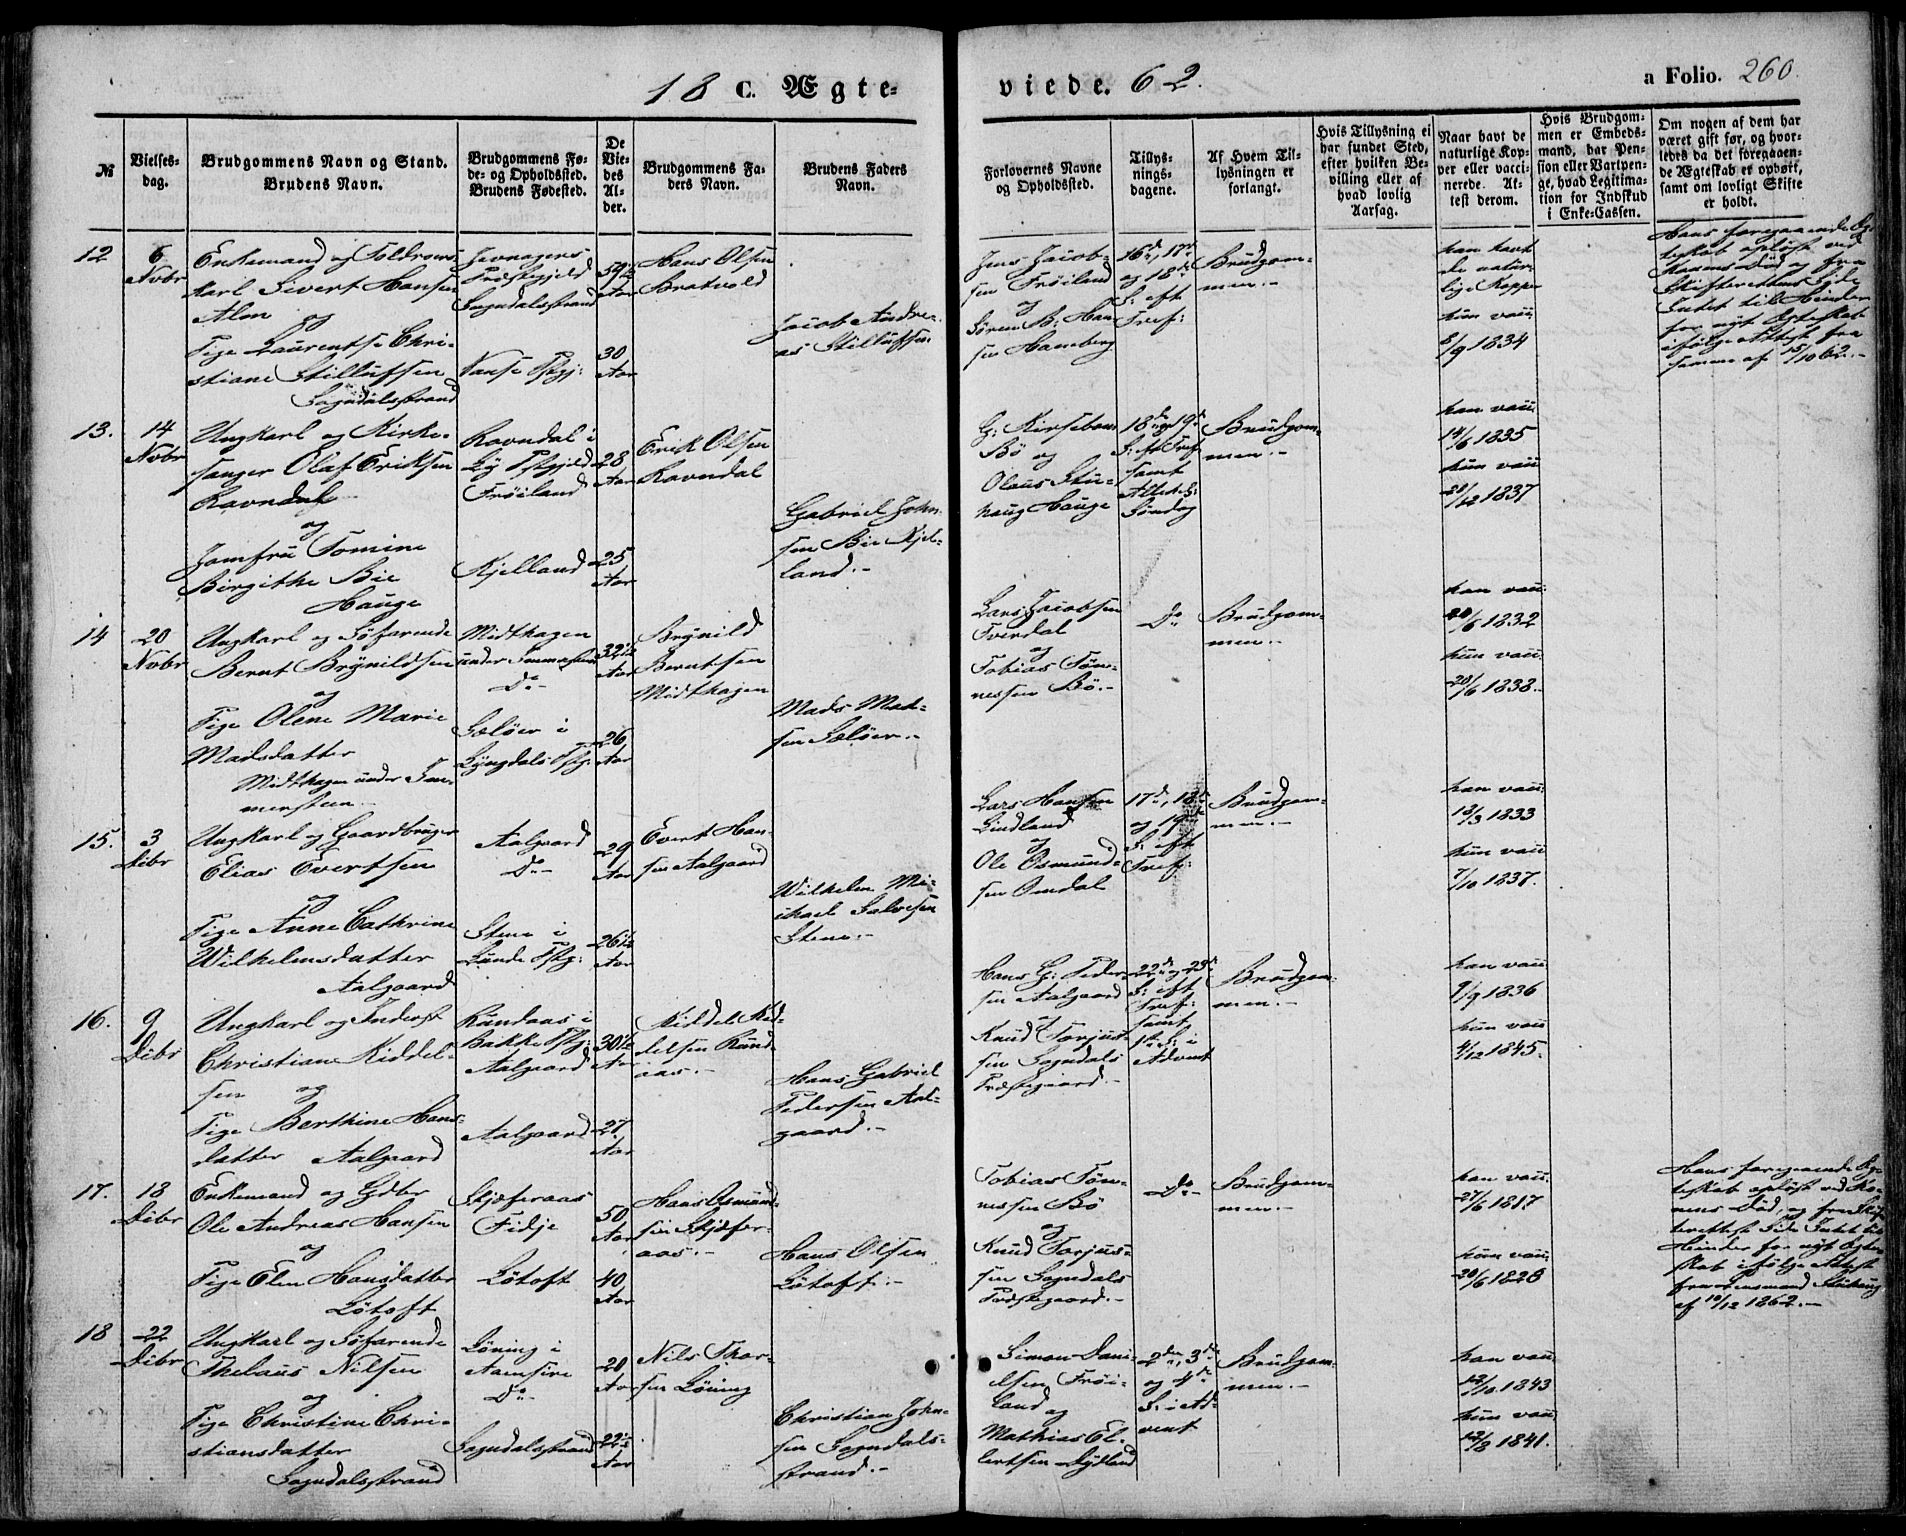 18 C. Ægte-
viede. 62.
a Folio. 260.
№
Vielses-
dag.
Brudgommens Navn og Stand.
Brudens Navn.
Brudgommens Fø-
de- og Opholdssted.
Brudens Fødested.
De
Vie-
des
Al-
der.
Brudgommens Fa-
ders Navn.
Brudens Faders
Navn.
Forlovernes Navne
og Opholdssted.
Tillys-
nings-
dagene.
Af Hvem Til-
lysningen er
forlangt.
Hvis Tillysning ei
har fundet Sted,
efter hvilken Be-
villing eller af
hvad lovlig
Aarsag.
Naar havt de
naturlige Kop-
per eller vacci-
nerede. At-
test derom.
Hvis Brudgom-
men er Embeds-
mand, har Pen-
sion eller Vartpen-
ge, hvad Legitima-
tion for Indskud
i Enke-Cassen.
Om nogen af dem har
været gift før, og hvor-
ledes da det foregaaen-
de Ægteskab er ophørt,
samt om lovligt Skifte
er holdt.
12
6
Novbr
Enkemand og
karl Sivert Hansen
og
Tige Laurentse Chri-
stiane Stilluffsen
Sogndalsstrand
Præstegjeld
Sogndalsstrand
Vanse Pstgj:
59½
Aar
30
Aar
Hans Olsen
Bratvold
Jacob Andre-
as Stilluffsen
Jens Jacob-
sen Frøiland
og
Søren B: Han-
sen Hamberg
16de, 17de
og 18de
S: eft
Tref:
Brudgom-
men.-
han havt
de natur-
lige Kopper
hun vacc:
8/9 1834
Hans foregaaende Æg-
teskab opløst ved
Konens Død og fra
Skifterettens Side
Intet til Hinder
for nyt Ægteskab
ifølge Attest fra
samme af 15/10 62.-
13.
14
Novbr
Ungkarl og Kirke-
sanger Olaf Eriksen
Ravndal
og
Jomfru Tomine
Birgithe Bie
Hauge
Ravndal i
Ly Pstgjeld
Frøiland
Kjelland
28
Aar
25
Aar
Erik Olsen
Ravndal
Gabriel John-
sen Bie Kjel-
land.-
G: Kirsebom
Bø og
Olaus Stu-
haug Hauge
18de og 19de
S: eft Tref
samt
Alleh:
Søndag
Brudgom-
men.-
han vacc:
14/6 1835
hun vacc
28/12 1837
14
20
Novbr
Ungkarl og Søfarende
Bernt Brynildsen
og
Tige Olene Marie
Madsdatter
Midthagen under Im-
mersteen
Midthagen
under Immersteen
Do-
Sæløer i
Lyngdals Pstg:
32½
Aar
26
Aar
Brynild
Berntsen
Midthagen
Mads Mad-
sen Sæløer.-
Lars Jacobsen
Tverdal
og
Tobias Tøn-
nessen Bø.-
Do
Brudgom-
men.-
han vacc:
20/6 1832
hun vacc:
20/6 1838.-
15.
3
Decbr
Ungkarl og Gaardbruger
Elias Evertsen
og
Tige Anne Cathrine
Wilhelmsdatter
Aalgaard
Aalgaard
Do-
Stene i
Lunde Pstg:
29
Aar
26½
Aar
Evert Han-
sen Aalgaard
Wilhelm Mi-
chael Salvesen
Stene.-
Lars Hansen
Lindland
og
Ole Osmund-
sen Omdal
17de, 18de
og 19de
S: eft
Tref:
Brudgom-
men.-
han vacc:
13/3 1833
hun vacc
7/10 1837.
16.
9
Decbr
Ungkarl og Inderst
Christian Kiddel-
sen
og
Tige Berthine Hans-
datter Aalgaard
Rundaas i
Bakke Pstg:
Aalgaard
Aalgaard
30½
Aar
27
Aar
Kiddel Kid-
delsen Rund-
aas.-
Hans Gabriel
Pedersen Aal-
gaard.-
Hans G: Peder-
sen Aalgaard
og
Knud Torjus-
sen Sogndals
Præstegaard.-
22de og 23de
S: eft
Tref:
samt
1ste S: i
Advent
Brudgom-
men.-
han vacc:
9/9 1836
hun vacc
4/12 1845.
17.
18
Decbr
Enkemand og Gdbr
Ole Andreas Hansen
og
Tige Elen Hansdatter
Løtoft
Skjæferaas
Fidje
Løtoft
50
Aar
40
Aar
Hans Osmund-
sen Skjæfer-
aas.-
Hans Olsen
Løtoft.-
Tobias Tøn-
nessen Bø
og
Knud Torjus-
sen Sogndals
Præstegaard.-
Do-
Brudgom-
men.-
han vacc:
27/6 1817
hun vacc:
20/6 1828
Hans foregaaende Æg-
teskab opløst ved Ko-
nens Død, og fra Skif-
terettens Side Intet til
Hinder for nyt Ægte-
skab ifølge Attest
fra Lensmand Stuhaug
af 10/12 1862.-
18
22
Decbr
Ungkarl og Søfarende
Thelaus Nilsen
og
Tige Christine Chri-
stiansdatter
Sogndalsstrand
Løning i
Aamsire
Do-
Sogndalsstrand
20
Aar
22½
Aar
Nils Thor-
sen Løning
Christian John-
sen Sogndals-
strand.-
Simon Dani-
elsen Frøi-
land og
Mathias El-
lertsen Dydland
2den, 3de
og 4de
S: i Ad-
vent
Brudgom-
men.-
han vacc:
13/10 1843
hun vacc
12/8 1841.